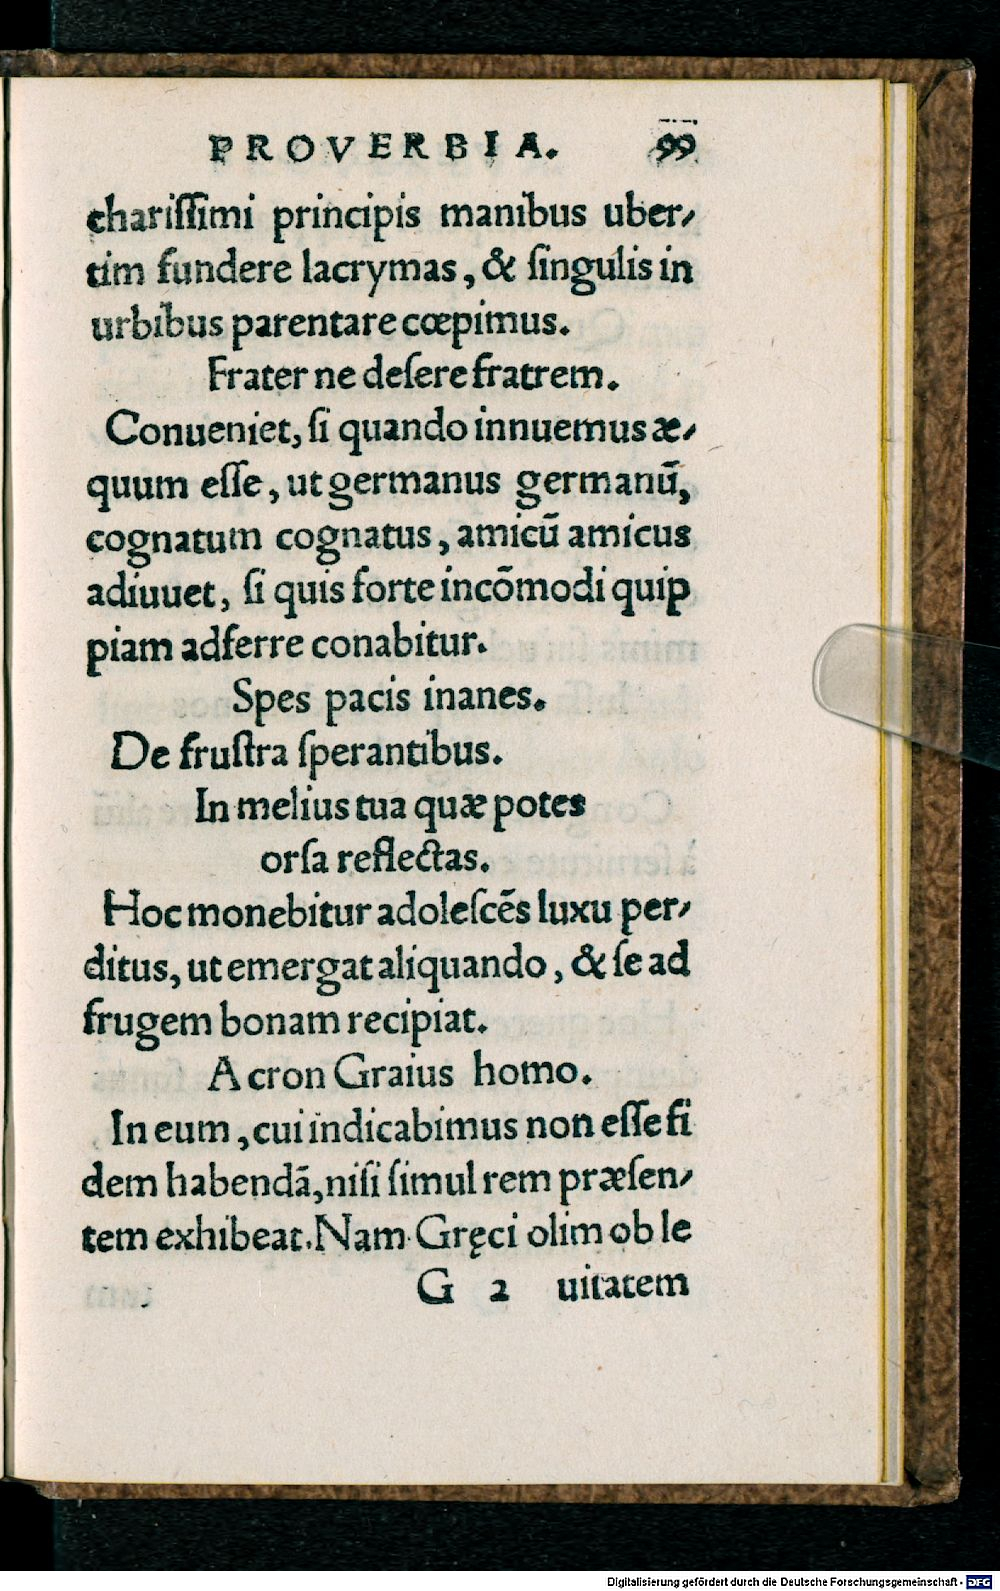 PROVERBIA. 99
chariſſimi principis manibus uber⸗
tim fundere lacrymas, & ſingulis in
urbibus parentare cœpimus.
Frater ne deſere fratrem.
Conueniet, ſi quando innuemus æ⸗
quum eſſe, ut germanus germanū,
cognatum cognatus, amicū amicus
adiuuet, ſi quis forte incōmodi quip
piam adferre conabitur.
Spes pacis inanes.
De fruſtra ſperantibus.
In melius tua quæ potes
orſa reflectas.
Hoc monebitur adoleſcēs luxu per⸗
ditus, ut emergat aliquando, & ſe ad
frugem bonam recipiat.
Acron Graius homo.
In eum, cui indicabimus non eſſe fi
dem habendā, niſi ſimul rem præſen⸗
tem exhibeat. Nam Gręci olim ob le
G 2 uitatem
Digitalisierung gefördert durch die Deutsche Forschungsgemeinschaft - DFG